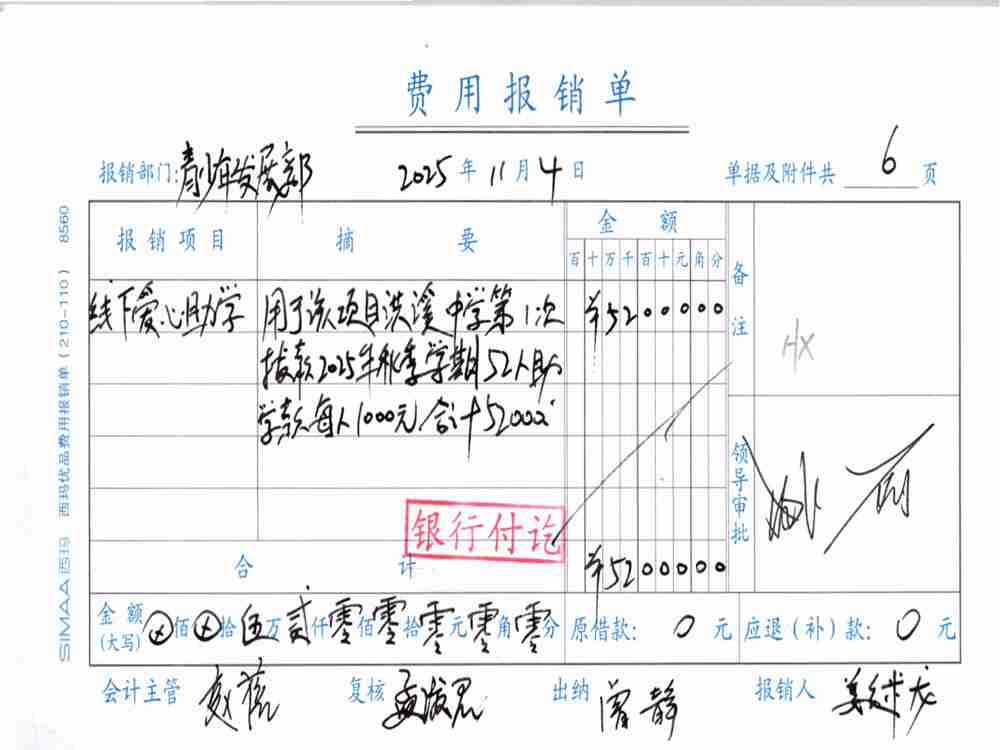 费用报销单
报销部门:青少年发展部 2025年11月4日 单据及附件共6页
报销项目 摘要 金额 备注
百十万千百十元角分
线下爱心助学 用于该项目洪溪中学第1次 ¥5200000
拨款2025年秋季学期52人助
学款每人1000元合计52000
HX
领导审批
银行付讫
合计 ¥5200000
金额(大写) ⊗佰⊗拾伍万贰仟零佰零拾零元零角零分 原借款: 0元 应退(补)款: 0元
会计主管 复核 出纳 曾静 报销人
SIMAA西玛 西玛优品费用报销单(210-110) 8560